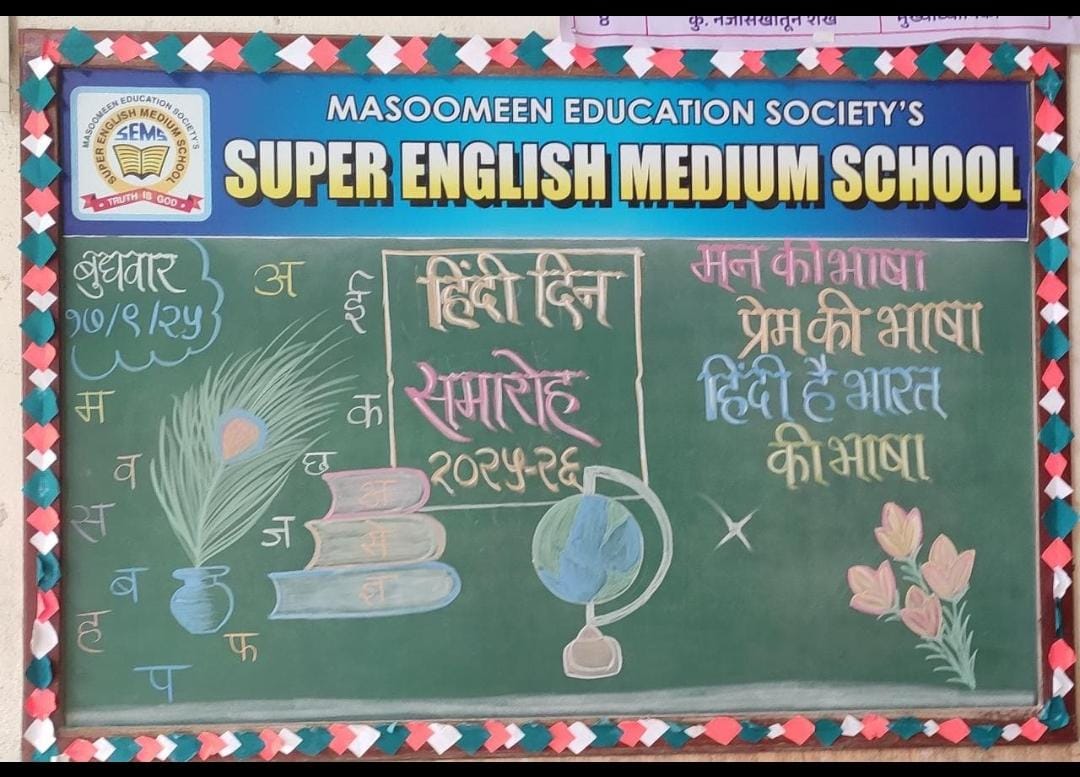 ८ कु. नजीसखातून शेख
MASOOMEEN EDUCATION SOCIETY'S
SUPER ENGLISH MEDIUM SCHOOL
MASOOMEEN EDUCATION SOCIETY'S
SUPER ENGLISH MEDIUM SCHOOL
SEMS
• TRUTH IS GOD •
बुधवार
१७/९/२५
अ
ई
हिंदी दिन
समारोह
२०२५-२६
मन की भाषा
प्रेम की भाषा
हिंदी है भारत
की भाषा
म
क
व
छ
स
ज
ब
ह
फ
प
अ
से
ज्ञ